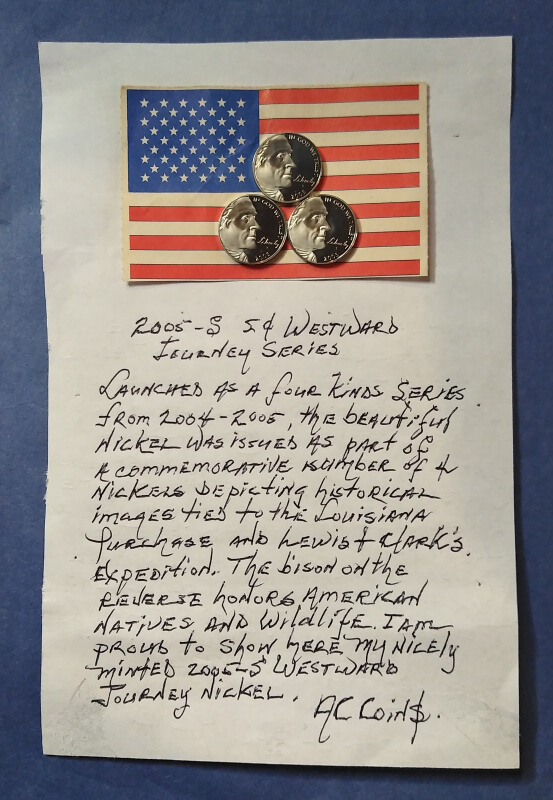 IN GOD WE TRUST
Liberty
2005
IN GOD WE TRUST
Liberty
2005
IN GOD WE TRUST
Liberty
2005
2005-S 5¢ WESTWARD
JOURNEY SERIES
LAUNCHED AS A fOUR KINDS SERIES
fROM 2004-2005, the beautiful
NICKEL WAS ISSUED AS part of
A COMMEMORATIVE NUMBER of 4
NICKELS DEPICTING historical
images tied to the LOUISIANA
PURCHASE AND LEWIS & CLARK'S
EXPEDITION. The bison on the
REVERSE honors AMERICAN
NATIVES AND Wildlife. I AM
pROUD to show HERE my NICELY
MINTED 2005-S WESTWARD
JOURNEY NICKEL.
AC COIN$.